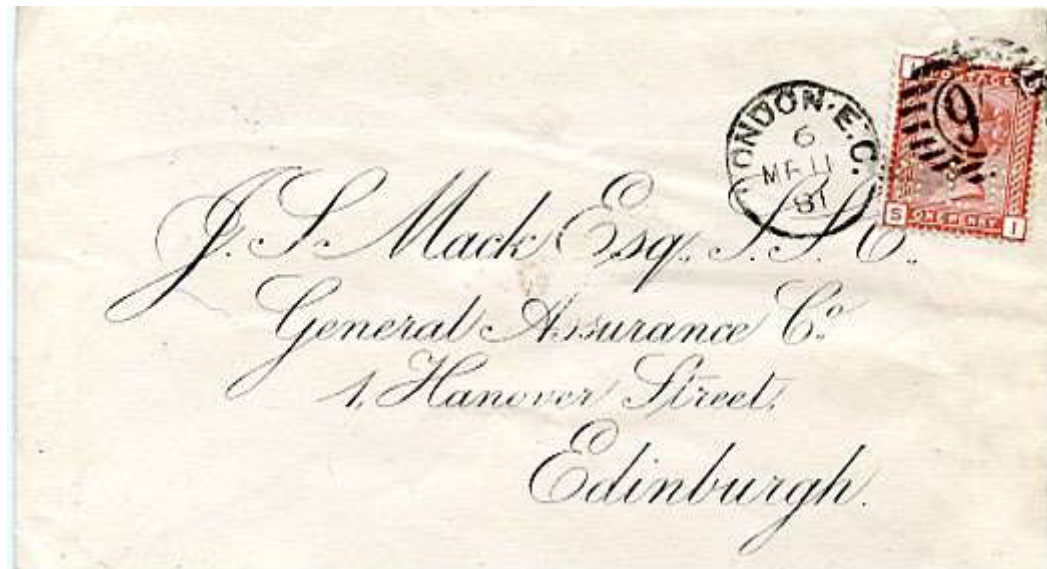 LONDON·E.C.
6
MR 11
81
9
POSTAGE
S ONE PENNY I
J. S. Mack Esq. S.S.C.
General Assurance Co.
1, Hanover Street,
Edinburgh.